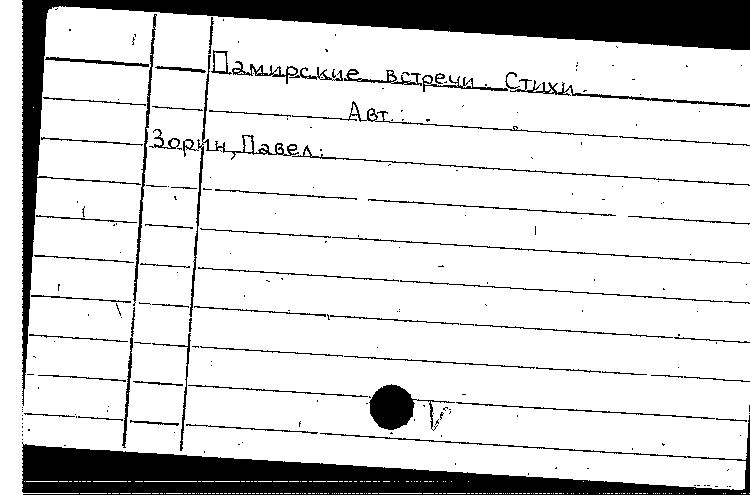 Памирские встречи. Стихи.
Авт.:
Зорин, Павел.
V